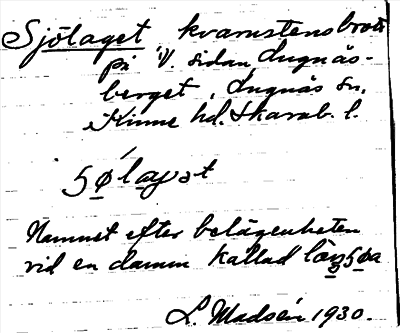 Sjölaget kvarnstensbrott
på V. sidan Lugnås-
berget, Lugnås sn,
Kinne hd. Skarab. l.
5ǿlagət
Namnet efter belägenheten
vid en damm kallad
L. Madsén 1930.